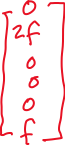 0
2f
0
0
0
f